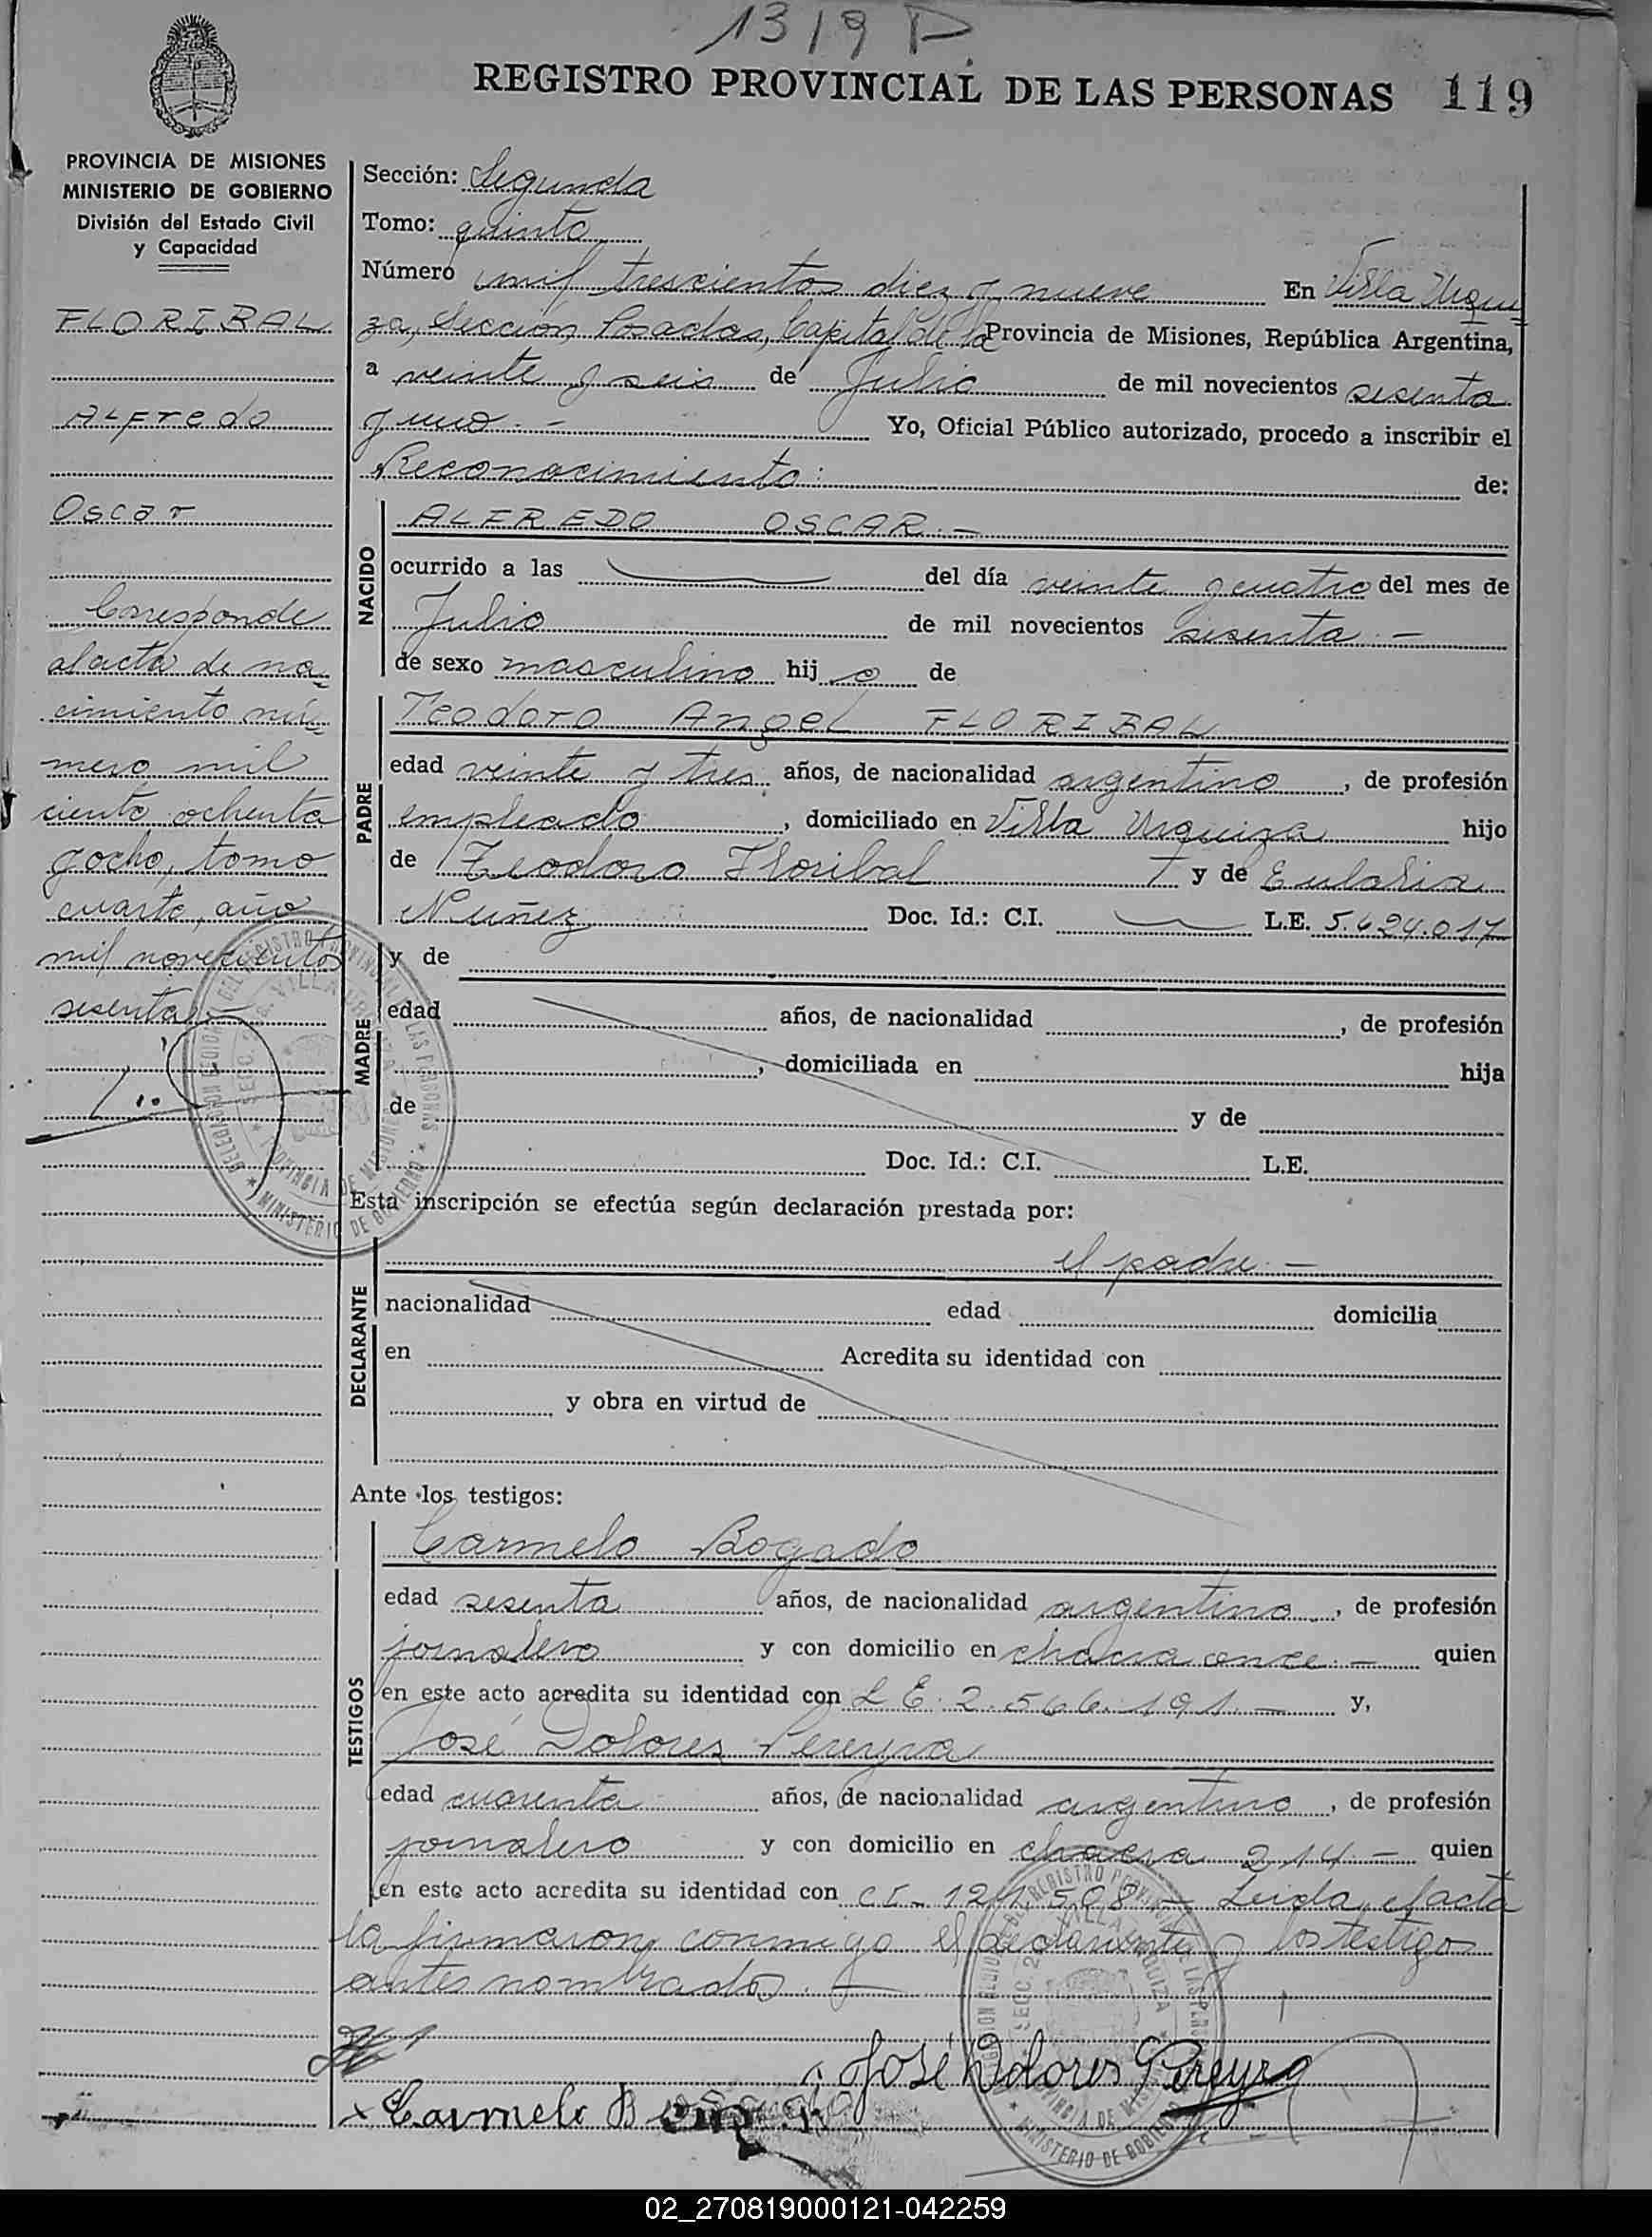 1319 D
REGISTRO PROVINCIAL DE LAS PERSONAS 119
PROVINCIA DE MISIONES
MINISTERIO DE GOBIERNO
División del Estado Civil
y Capacidad
FLORIBAL
Alfredo
Oscar
Corresponde
al acta de na-
cimiento nú-
mero mil
ciento ochenta
y ocho, tomo
cuarto, año
mil novecientos
sesenta.-
Sección: Segunda
Tomo: quinto
Número mil trescientos diez y nueve En Villa Urqui
za, Sección Posadas, Capital de la Provincia de Misiones, República Argentina,
a veinte y seis de Julio de mil novecientos sesenta
y uno.- Yo, Oficial Público autorizado, procedo a inscribir el
Reconocimiento: de:
NACIDO
ALFREDO OSCAR.-
ocurrido a las del día veinte y cuatro del mes de
Julio de mil novecientos sesenta.-
de sexo masculino hijo de
PADRE
Teodoro Angel FLORIBAL
edad veinte y tres años, de nacionalidad argentino, de profesión
empleado, domiciliado en Villa Urquiza hijo
de Teodoro Floribal y de Eulalia
Nuñez Doc. Id.: C.I. L.E. 5.624.017
MADRE
y de
edad años, de nacionalidad , de profesión
, domiciliada en hija
de y de
Doc. Id.: C.I. L.E.
Esta inscripción se efectúa según declaración prestada por:
el padre.-
DECLARANTE
nacionalidad edad domicilia
en Acredita su identidad con
y obra en virtud de
Ante los testigos:
TESTIGOS
Carmelo Bogado
edad sesenta años, de nacionalidad argentino, de profesión
jornalero y con domicilio en chacra once.- quien
en este acto acredita su identidad con L E. 2.566.191.- y,
José Dolores Pereyra
edad cuarenta años, de nacionalidad argentino, de profesión
jornalero y con domicilio en chacra 214- quien
en este acto acredita su identidad con C.I.- 121.508- Leida el acta
la firmaron conmigo el declarante y los testigos
antes nombrados.-
José Dolores Pereyra
x Carmelo Bogado
02_270819000121-042259